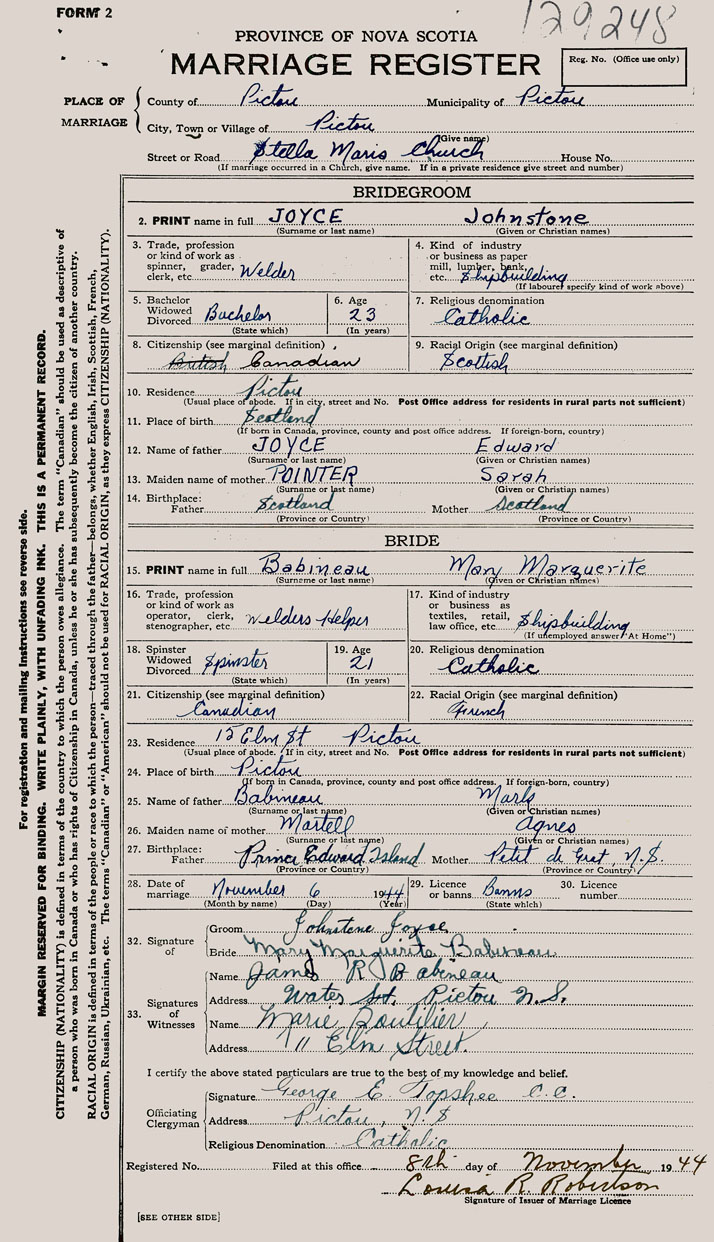 FORM 2
129248
PROVINCE OF NOVA SCOTIA
MARRIAGE REGISTER
Reg. No. (Office use only)
PLACE OF MARRIAGE
County of Pictou Municipality of Pictou
City, Town or Village of Pictou
(Give name)
Street or Road Stella Maris Church House No.
(If marriage occurred in a Church, give name. If in a private residence give street and number)
BRIDEGROOM
2. PRINT name in full JOYCE Johnstone
(Surname or last name) (Given or Christian names)
3. Trade, profession or kind of work as spinner, grader, clerk, etc. Welder
4. Kind of industry or business as paper mill, lumber, bank, etc. Shipbuilding
(If labourer specify kind of work above)
5. Bachelor Widowed Divorced Bachelor
(State which)
6. Age 23
(In years)
7. Religious denomination
Catholic
8. Citizenship (see marginal definition)
British Canadian
9. Racial Origin (see marginal definition)
Scottish
10. Residence Pictou
(Usual place of abode. If in city, street and No. Post Office address for residents in rural parts not sufficient)
11. Place of birth Scotland
(If born in Canada, province, county and post office address. If foreign-born, country)
12. Name of father JOYCE Edward
(Surname or last name) (Given or Christian names)
13. Maiden name of mother POINTER Sarah
(Surname or last name) (Given or Christian names)
14. Birthplace: Father Scotland Mother Scotland
(Province or Country) (Province or Country)
BRIDE
15. PRINT name in full Babineau Mary Marguerite
(Surname or last name) (Given or Christian names)
16. Trade, profession or kind of work as operator, clerk, stenographer, etc. Welders Helper
17. Kind of industry or business as textiles, retail, law office, etc. Shipbuilding
(If unemployed answer "At Home")
18. Spinster Widowed Divorced Spinster
(State which)
19. Age 21
(In years)
20. Religious denomination
Catholic
21. Citizenship (see marginal definition)
Canadian
22. Racial Origin (see marginal definition)
French
23. Residence 15 Elm St Pictou
(Usual place of abode. If in city, street and No. Post Office address for residents in rural parts not sufficient)
24. Place of birth Pictou
(If born in Canada, province, county and post office address. If foreign-born, country)
25. Name of father Babineau Mark
(Surname or last name) (Given or Christian names)
26. Maiden name of mother Martell Agnes
(Surname or last name) (Given or Christian names)
27. Birthplace: Father Prince Edward Island Mother Petit de Grat, N.S.
(Province or Country) (Province or Country)
28. Date of marriage November 6 1944
(Month by name) (Day) (Year)
29. Licence or banns Banns
(State which)
30. Licence number
32. Signature of
Groom Johnstone Joyce
Bride Mary Marguerite Babineau
33. Signatures of Witnesses
Name James R Babineau
Address Water St. Pictou N.S.
Name Marie Boutilier
Address 11 Elm Street.
I certify the above stated particulars are true to the best of my knowledge and belief.
Officiating Clergyman
Signature George E. Topshee C.C.
Address Pictou, N.S
Religious Denomination Catholic
Registered No. Filed at this office 8th day of November 1944
Louisa R. Robertson
Signature of Issuer of Marriage Licence
[SEE OTHER SIDE]
For registration and mailing instructions see reverse side.
MARGIN RESERVED FOR BINDING. WRITE PLAINLY, WITH UNFADING INK. THIS IS A PERMANENT RECORD.
CITIZENSHIP (NATIONALITY) is defined in terms of the country to which the person owes allegiance. The term "Canadian" should be used as descriptive of
a person who was born in Canada or who has rights of Citizenship in Canada, unless he or she has subsequently become the citizen of another country.
RACIAL ORIGIN is defined in terms of the people or race to which the person—traced through the father—belongs, whether English, Irish, Scottish, French,
German, Russian, Ukrainian, etc. The terms "Canadian" or "American" should not be used for RACIAL ORIGIN, as they express CITIZENSHIP (NATIONALITY).